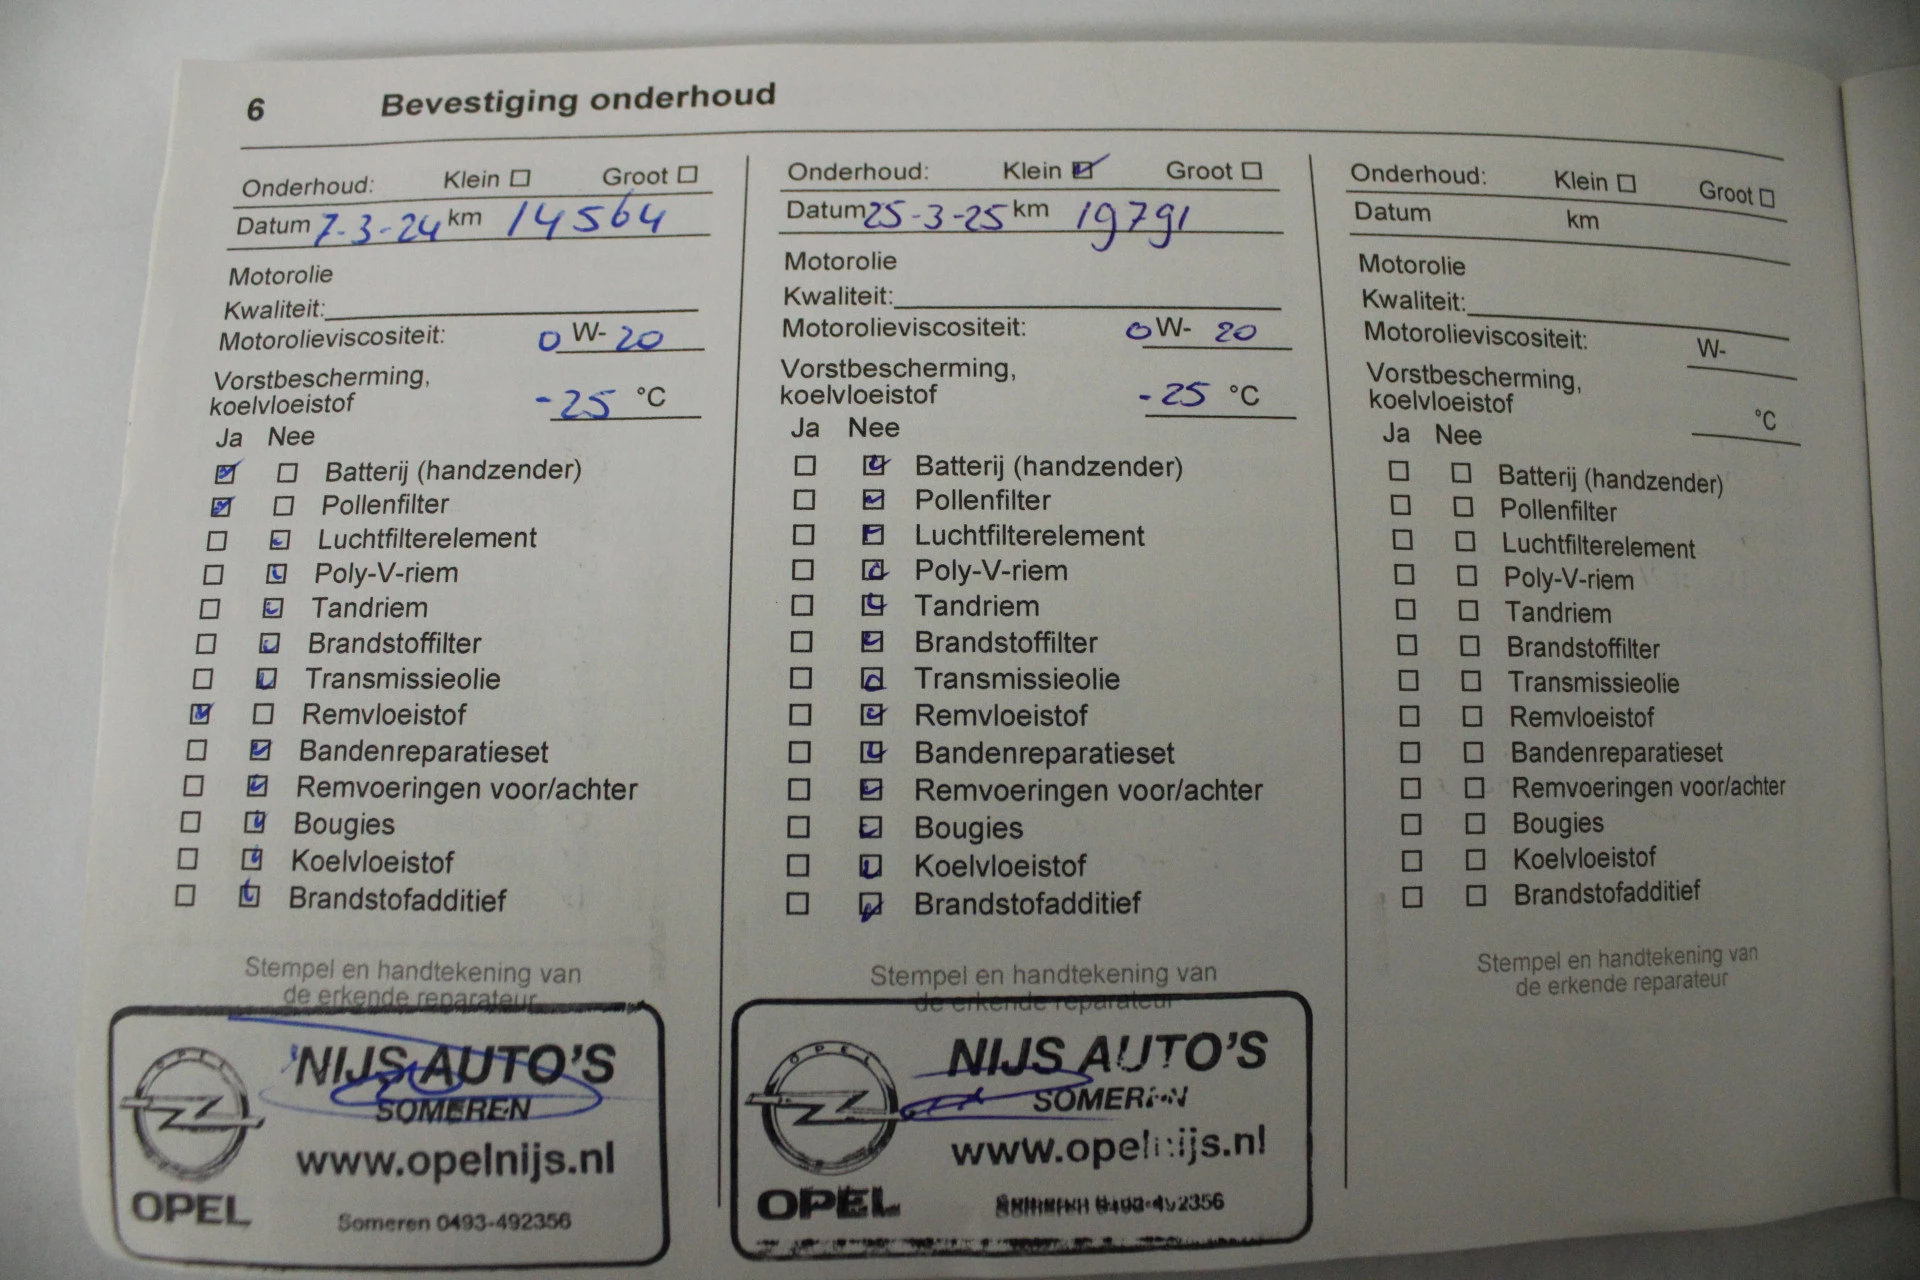 6 Bevestiging onderhoud
Onderhoud: Klein Groot
Datum 7-3-24 km 14564
Motorolie
Kwaliteit:
Motorolieviscositeit: 0 W- 20
Vorstbescherming,
koelvloeistof -25 °C
Ja Nee
Batterij (handzender)
Pollenfilter
Luchtfilterelement
Poly-V-riem
Tandriem
Brandstoffilter
Transmissieolie
Remvloeistof
Bandenreparatieset
Remvoeringen voor/achter
Bougies
Koelvloeistof
Brandstofadditief
Stempel en handtekening van
de erkende reparateur
OPEL
NIJS AUTO'S
SOMEREN
www.opelnijs.nl
OPEL
Someren 0493-492356
Onderhoud: Klein Groot
Datum 25-3-25 km 19791
Motorolie
Kwaliteit:
Motorolieviscositeit: 0 W- 20
Vorstbescherming,
koelvloeistof -25 °C
Ja Nee
Batterij (handzender)
Pollenfilter
Luchtfilterelement
Poly-V-riem
Tandriem
Brandstoffilter
Transmissieolie
Remvloeistof
Bandenreparatieset
Remvoeringen voor/achter
Bougies
Koelvloeistof
Brandstofadditief
Stempel en handtekening van
de erkende reparateur
OPEL
NIJS AUTO'S
SOMEREN
www.opelnijs.nl
OPEL
Someren 0493-492356
Onderhoud: Klein Groot
Datum km
Motorolie
Kwaliteit:
Motorolieviscositeit: W-
Vorstbescherming,
koelvloeistof °C
Ja Nee
Batterij (handzender)
Pollenfilter
Luchtfilterelement
Poly-V-riem
Tandriem
Brandstoffilter
Transmissieolie
Remvloeistof
Bandenreparatieset
Remvoeringen voor/achter
Bougies
Koelvloeistof
Brandstofadditief
Stempel en handtekening van
de erkende reparateur